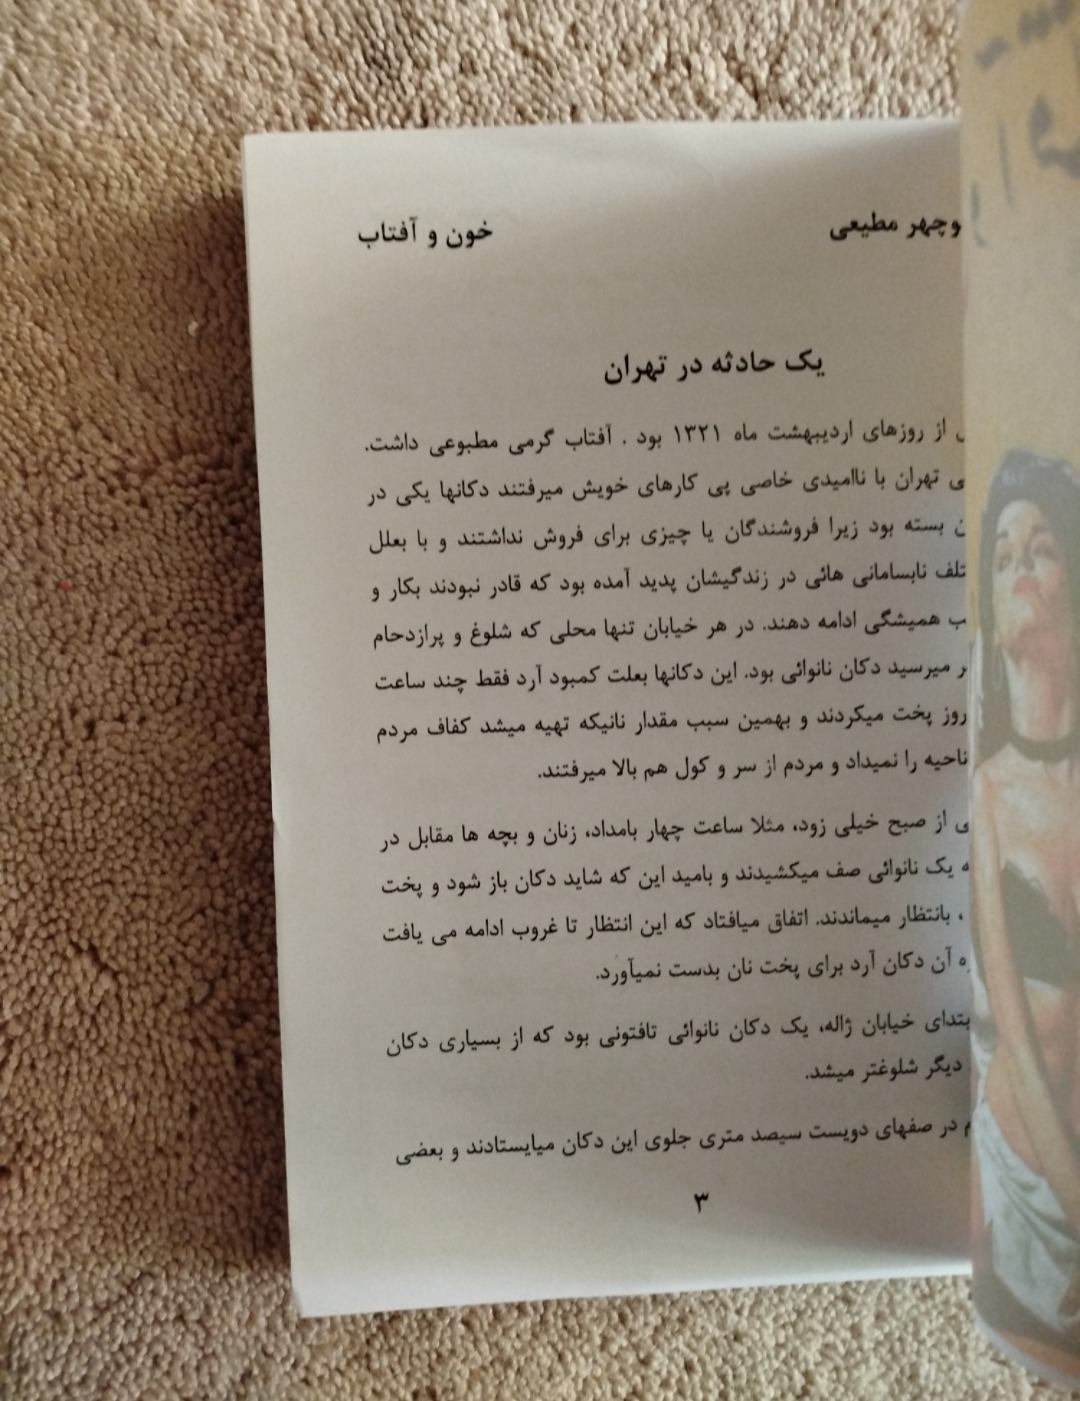 مطیعی خون و آفتاب
یک حادثه در تهران
از روزهای اردیبهشت ماه ۱۳۲۱ بود . آفتاب گرمی مطبوعی داشت.
تهران با ناامیدی خاصی پی کارهای خویش میرفتند دکانها یکی در
بسته بود زیرا فروشندگان یا چیزی برای فروش نداشتند و با بعلل
نابسامانی هائی در زندگیشان پدید آمده بود که قادر نبودند بکار و
همیشگی ادامه دهند. در هر خیابان تنها محلی که شلوغ و پرازدحام
میرسید دکان نانوائی بود. این دکانها بعلت کمبود آرد فقط چند ساعت
روز پخت میکردند و بهمین سبب مقدار نانیکه تهیه میشد کفاف مردم
ناحیه را نمیداد و مردم از سر و کول هم بالا میرفتند.
از صبح خیلی زود، مثلا ساعت چهار بامداد، زنان و بچه ها مقابل در
یک نانوائی صف میکشیدند و بامید این که شاید دکان باز شود و پخت
، بانتظار میماندند. اتفاق میافتاد که این انتظار تا غروب ادامه می یافت
آن دکان آرد برای پخت نان بدست نمیآورد.
خیابان ژاله، یک دکان نانوائی تافتونی بود که از بسیاری دکان
دیگر شلوغتر میشد.
در صفهای دویست سیصد متری جلوی این دکان میایستادند و بعضی
۳